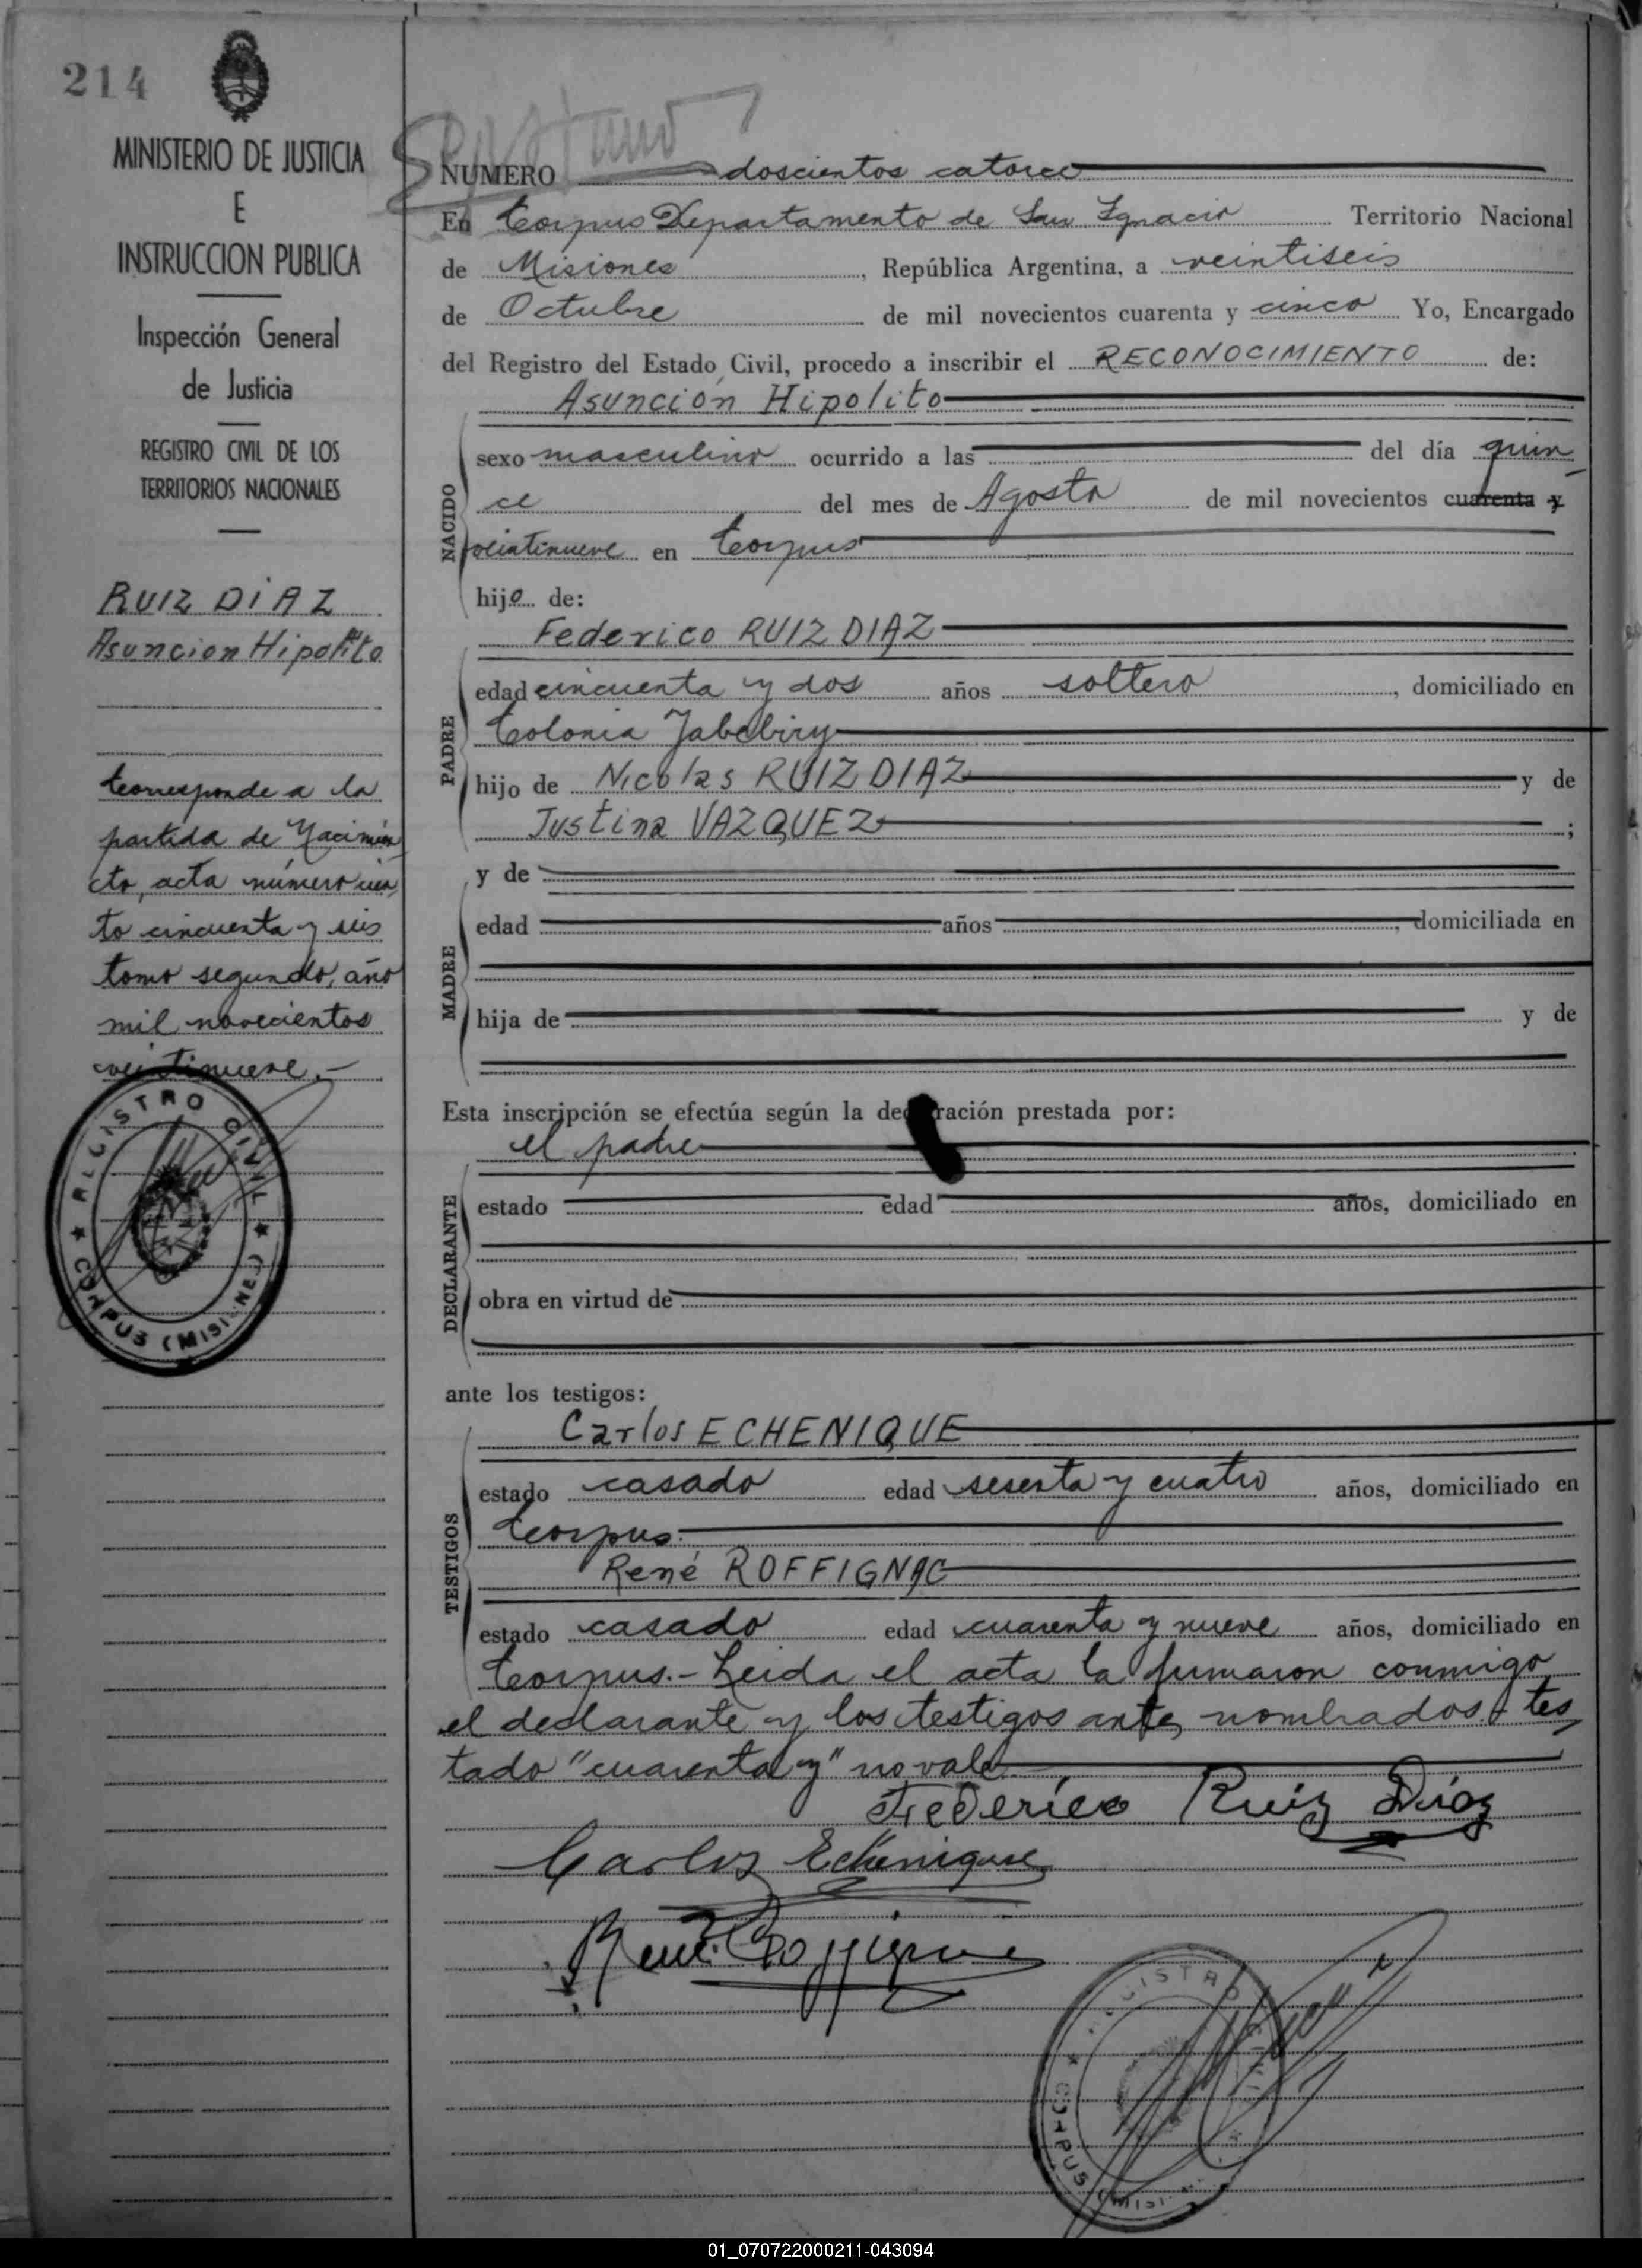 214
MINISTERIO DE JUSTICIA
E
INSTRUCCION PUBLICA
Inspección General
de Justicia
REGISTRO CIVIL DE LOS
TERRITORIOS NACIONALES
RUIZ DIAZ
Asuncion Hipolito
Corresponde a la
partida de Nacimien
to, acta número cien
to cincuenta y seis
tomo segundo, año
mil novecientos
veintinueve.-
REGISTRO CIVIL
CORPUS (MISIONES)
NUMERO doscientos catorce
En Corpus Departamento de San Ignacio Territorio Nacional
de Misiones, República Argentina, a veintiseis
de Octubre de mil novecientos cuarenta y cinco Yo, Encargado
del Registro del Estado Civil, procedo a inscribir el RECONOCIMIENTO de:
Asunción Hipolito
NACIDO
sexo masculino ocurrido a las del día quin
ce del mes de Agosto de mil novecientos cuarenta y
veintinueve en Corpus
hijo de:
Federico RUIZ DIAZ
PADRE
edad cincuenta y dos años soltero, domiciliado en
Colonia Jabebiry
hijo de Nicolas RUIZ DIAZ y de
Justina VAZQUEZ;
MADRE
y de
edad años, domiciliada en
hija de y de
Esta inscripción se efectúa según la declaración prestada por:
el padre
DECLARANTE
estado edad años, domiciliado en
obra en virtud de
ante los testigos:
Carlos ECHENIQUE
TESTIGOS
estado casado edad sesenta y cuatro años, domiciliado en
Corpus.
René ROFFIGNAC
estado casado edad cuarenta y nueve años, domiciliado en
Corpus.- Leida el acta la firmaron conmigo
el declarante y los testigos antes nombrados. tes
tado "cuarenta y" no vale
Federico Ruiz Díaz
Carlos Echenique
René Roffignac
01_070722000211-043094